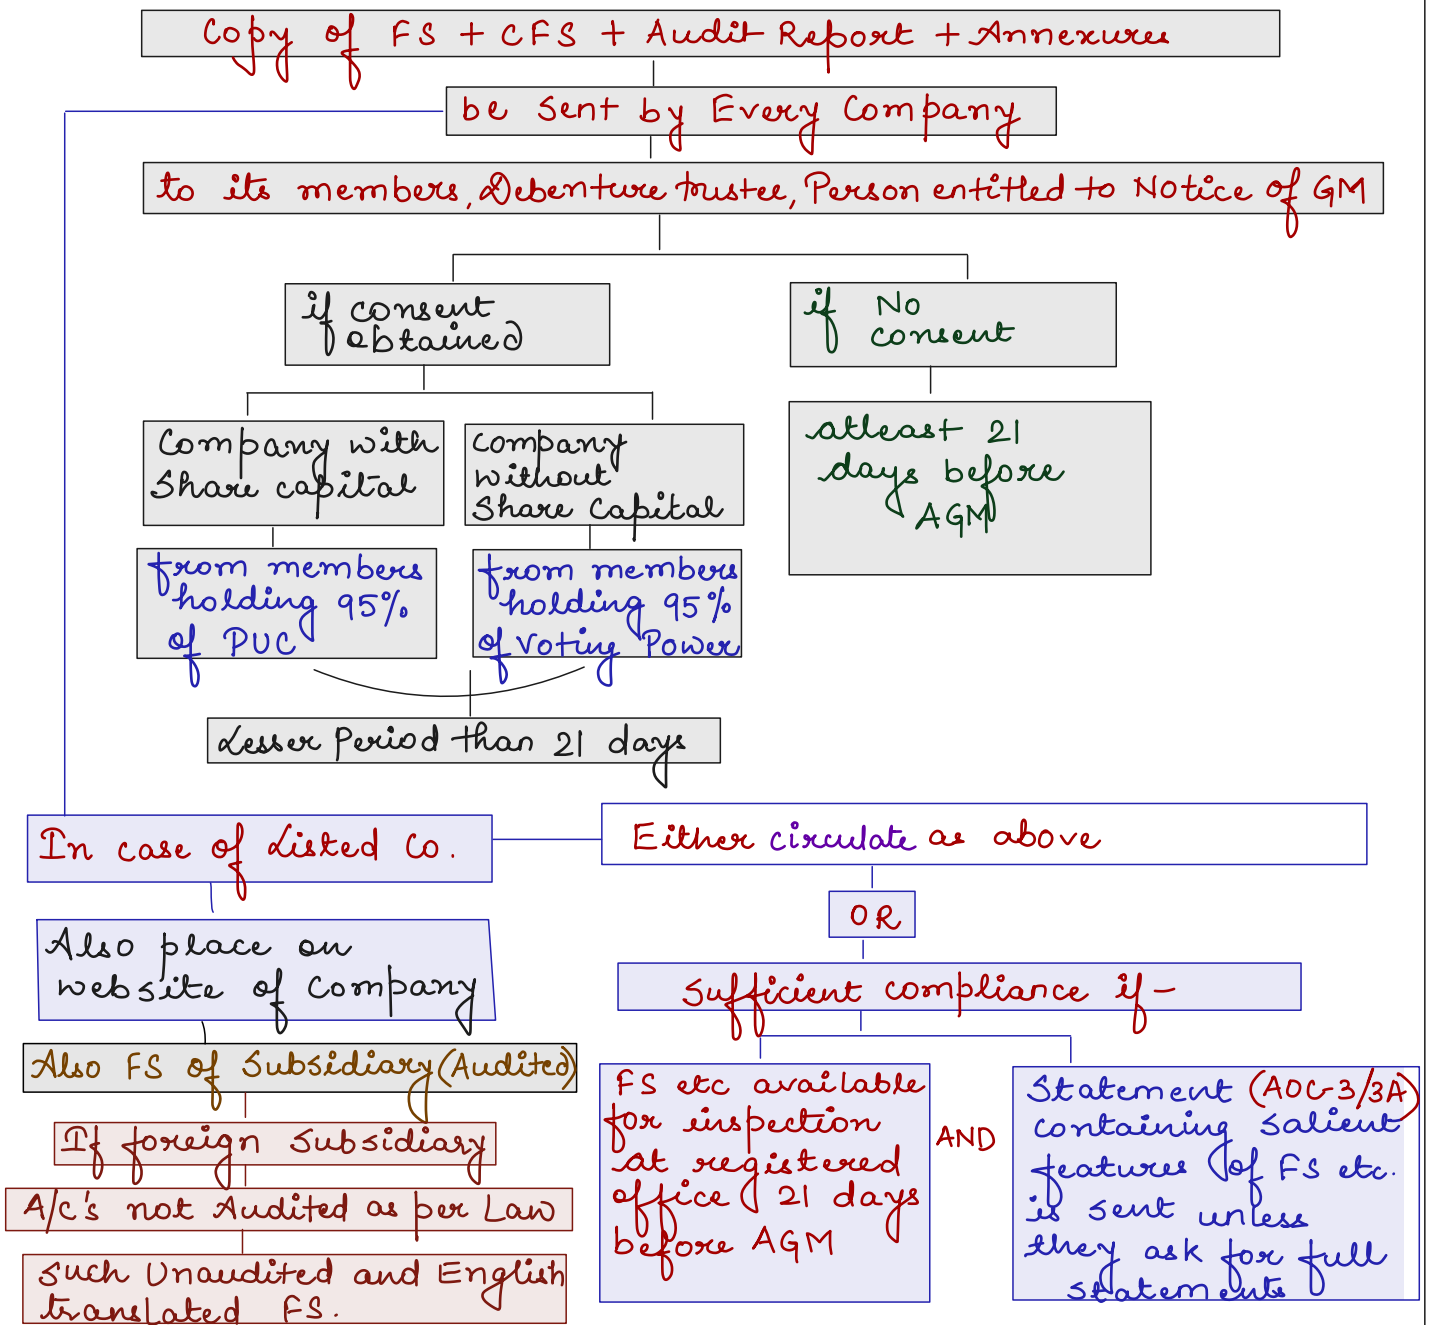 Copy of FS + CFS + Audit Report + Annexures
be sent by Every Company
to its members, Debenture trustee, Person entitled to Notice of GM
if consent
obtained
if No
consent
Company with
Share capital
Company
without
Share Capital
atleast 21
days before
AGM
from members
holding 95%
of PUC
from members
holding 95%
of Voting Power
Lesser Period than 21 days
In case of Listed Co.
Either circulate as above
OR
Also place on
website of Company
Sufficient compliance if -
Also FS of Subsidiary (Audited)
If foreign Subsidiary
A/c's not Audited as per Law
Such Unaudited and English
translated FS.
FS etc available
for inspection
at registered
office 21 days
before AGM
AND
Statement (AOC-3/3A)
containing salient
features of FS etc.
is sent unless
they ask for full
statements